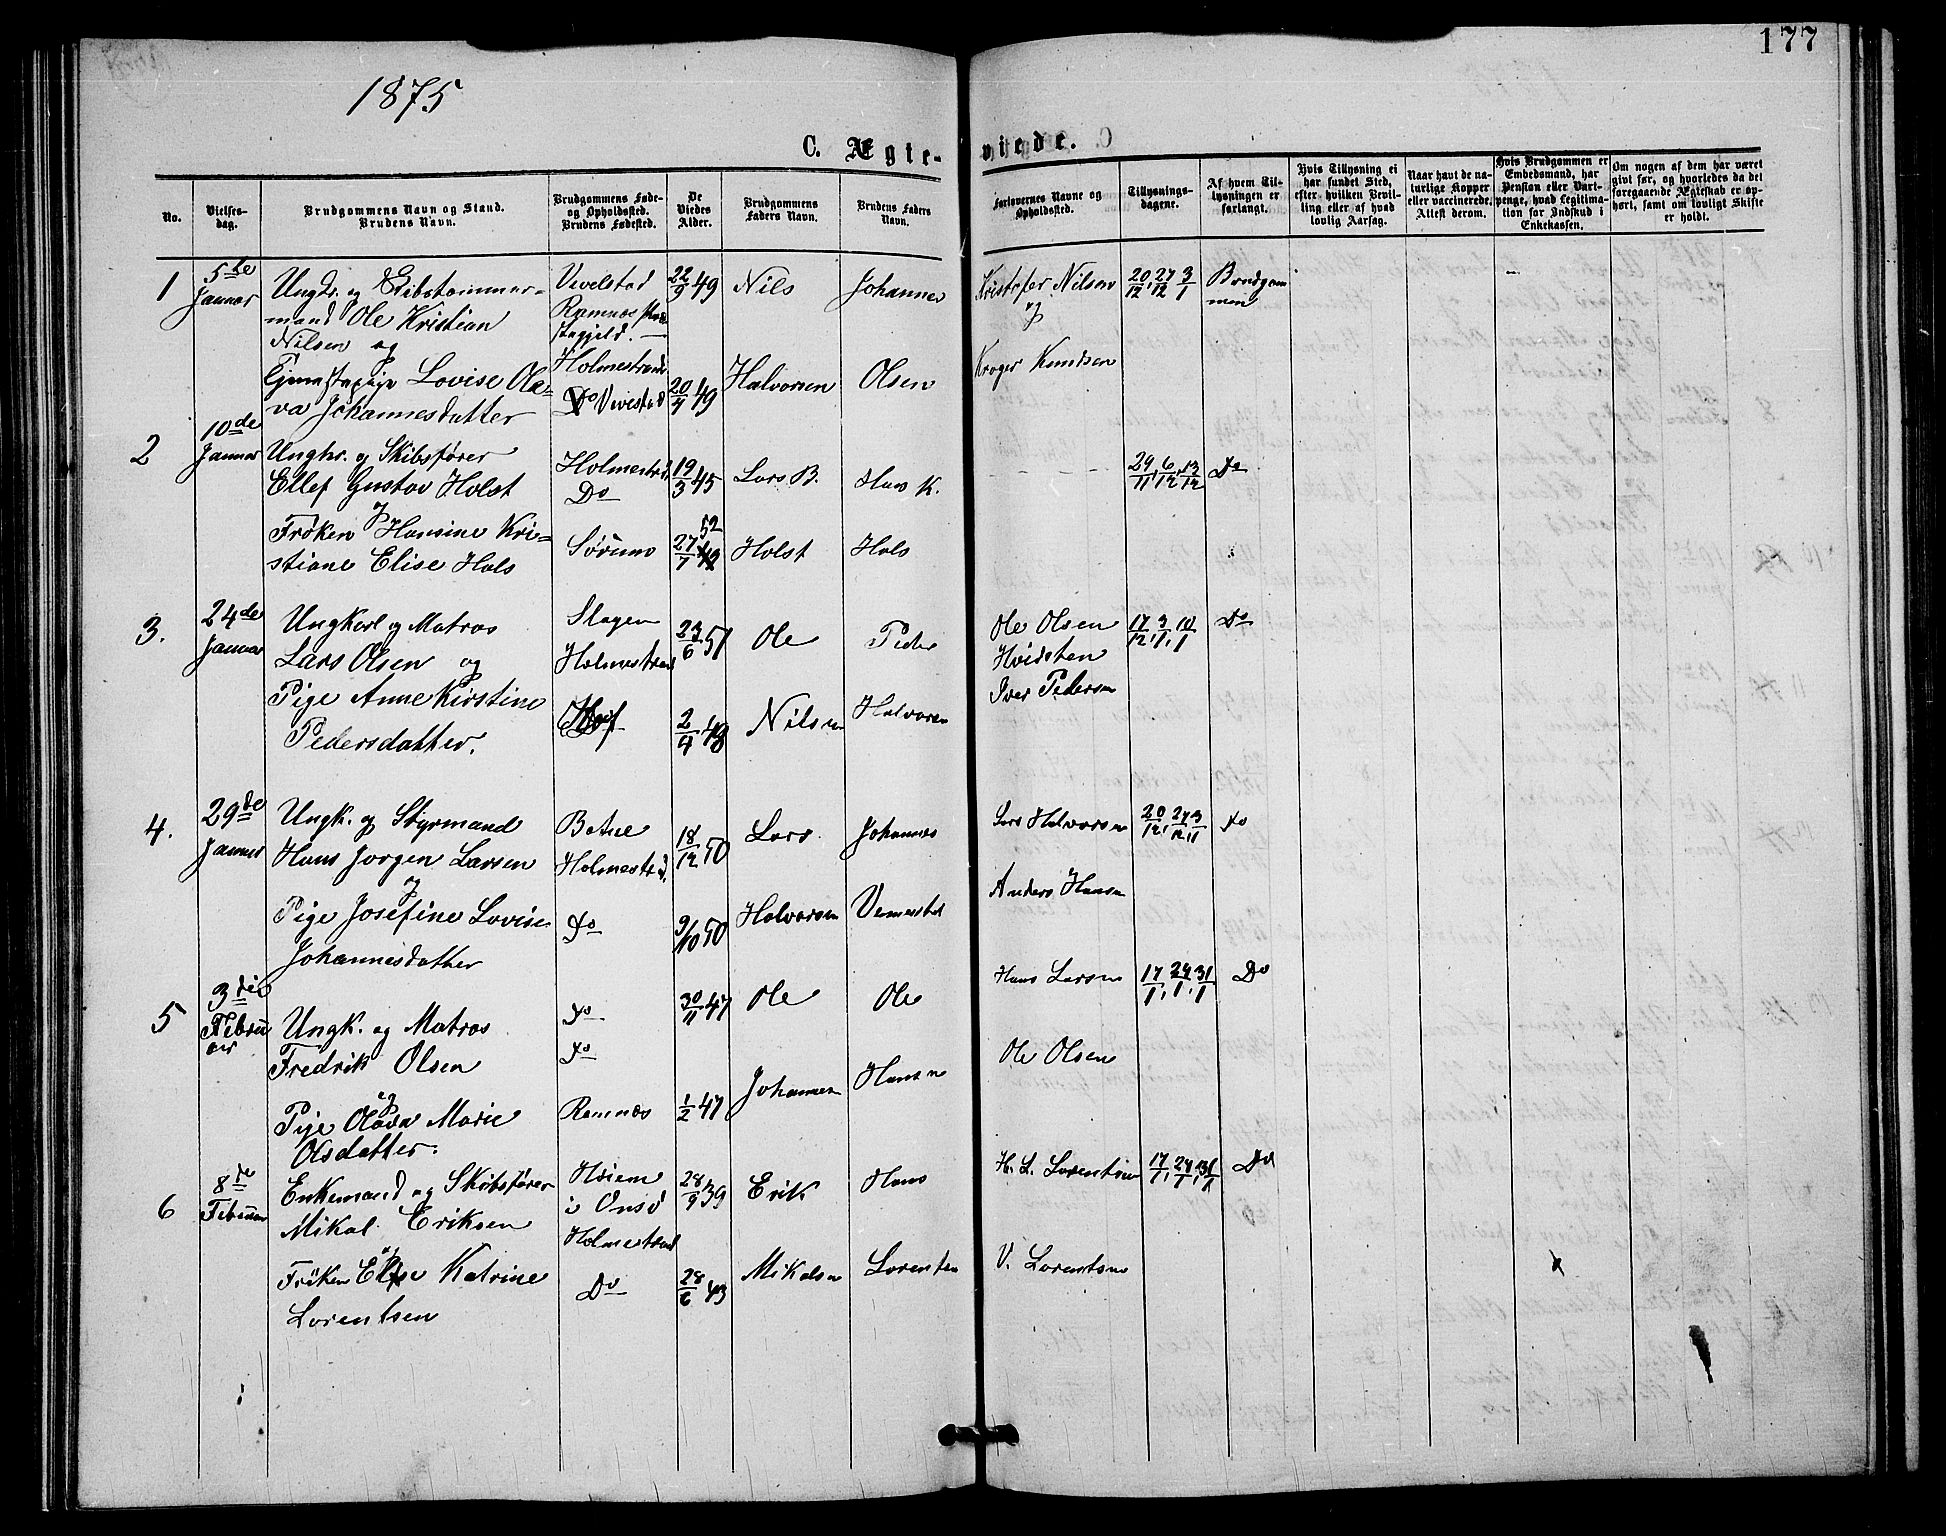 177
1875
C. Ægte-viede.
No.
Vielses-
dag.
Brudgommens Navn og Stand.
Brudens Navn.
Brudgommens Føde-
og Opholdssted.
Brudens Fødested.
De
Viedes
Alder.
Brudgommens
Faders Navn.
Brudens Faders
Navn.
Forlovernes Navne og
Opholdssted.
Tillysnings-
dagene.
Af hvem Til-
lysningen er
forlangt.
Hvis Tillysning ei
har fundet Sted,
efter hvilken Bevil-
ling eller af hvad
lovlig Aarsag.
Naar havt de na-
turlige Kopper
eller vaccinerede,
Attest derom.
Hvis Brudgommen er
Embedsmand, har
Pension eller Vart-
penge, hvad Legitima-
tion for Indskud i
Enkekassen.
Om nogen af dem har været
givt før, og hvorledes da det
foregaaende Ægteskab er op-
hørt, samt om lovligt Skifte
er holdt.
1
5te
Januar
Ungk. og Skibstømmer-
mand Ole Kristian
Nilsen og
Tjenestepige Lovise Ola-
va Johannesdatter
Vivelstad
Ramnæs Præ-
stegjeld.
Holmestrand
Do Vivestad
22/9 49
20/7 49
Nils
Halvorsen
Johannes
Olsen
Kristofer Nilsen
og
Kroger Knudsen
20/12, 27/12 3/1
Brudgom
men
2
10de
Januar
Ungkr. og Skibsfører
Ellef Gustav Holst
og
Frøken Hansine Kri-
stiane Elise Hals
Holmestrd.
Do
Sørum
19/3 45
52
27/7 49
Lars B.
Holst
Hans K.
Hals
29/11, 6/12, 13/12
Do
3.
24de
Januar
Ungkarl og Matros
Lars Olsen og
Pige Anne Kirstine
Pedersdatter.
Slagen
Holmestrand
Hof
23/6 51
2/4 48
Ole
Nilsen
Peder
Halvorsen
Ole Olsen
Hvidsten
Iver Pedersen
17/12, 3/1, 10/1
Do
4.
29de
Januar
Ungk. og Styrmand
Hans Jørgen Larsen
og
Pige Josefine Lovise
Johannesdatter
Botne
Holmestrd.
Do
18/12 50
9/10 50
Lars
Halvorsen
Johannes
Lars Halvorsen
Anders Hansen
20/12, 27/12 3/1
Do
5
3die
Februar
Ungk. og Matros
Fredrik Olsen
og
Pige Olava Marie
Olsdatter.
Do
Do
Ramnæs
30/11 47
1/2 47
Ole
Johannesen
Ole
Hansen
Hans Larsen
Ole Olsen
17/1, 24/1, 31/1
Do
6
8de
Februar
Enkemand og Skibsfører
Mikal Eriksen
og
Frøken Elise Katrine
Lorentsen
i Onsø
Holmestrand
Do
28/9 39
28/6 43
Erik
Mikalsen
Hans
Lorentsen
H. L. Lorentsen
V. Lorentsen
17/1, 24/1 31/1
Do